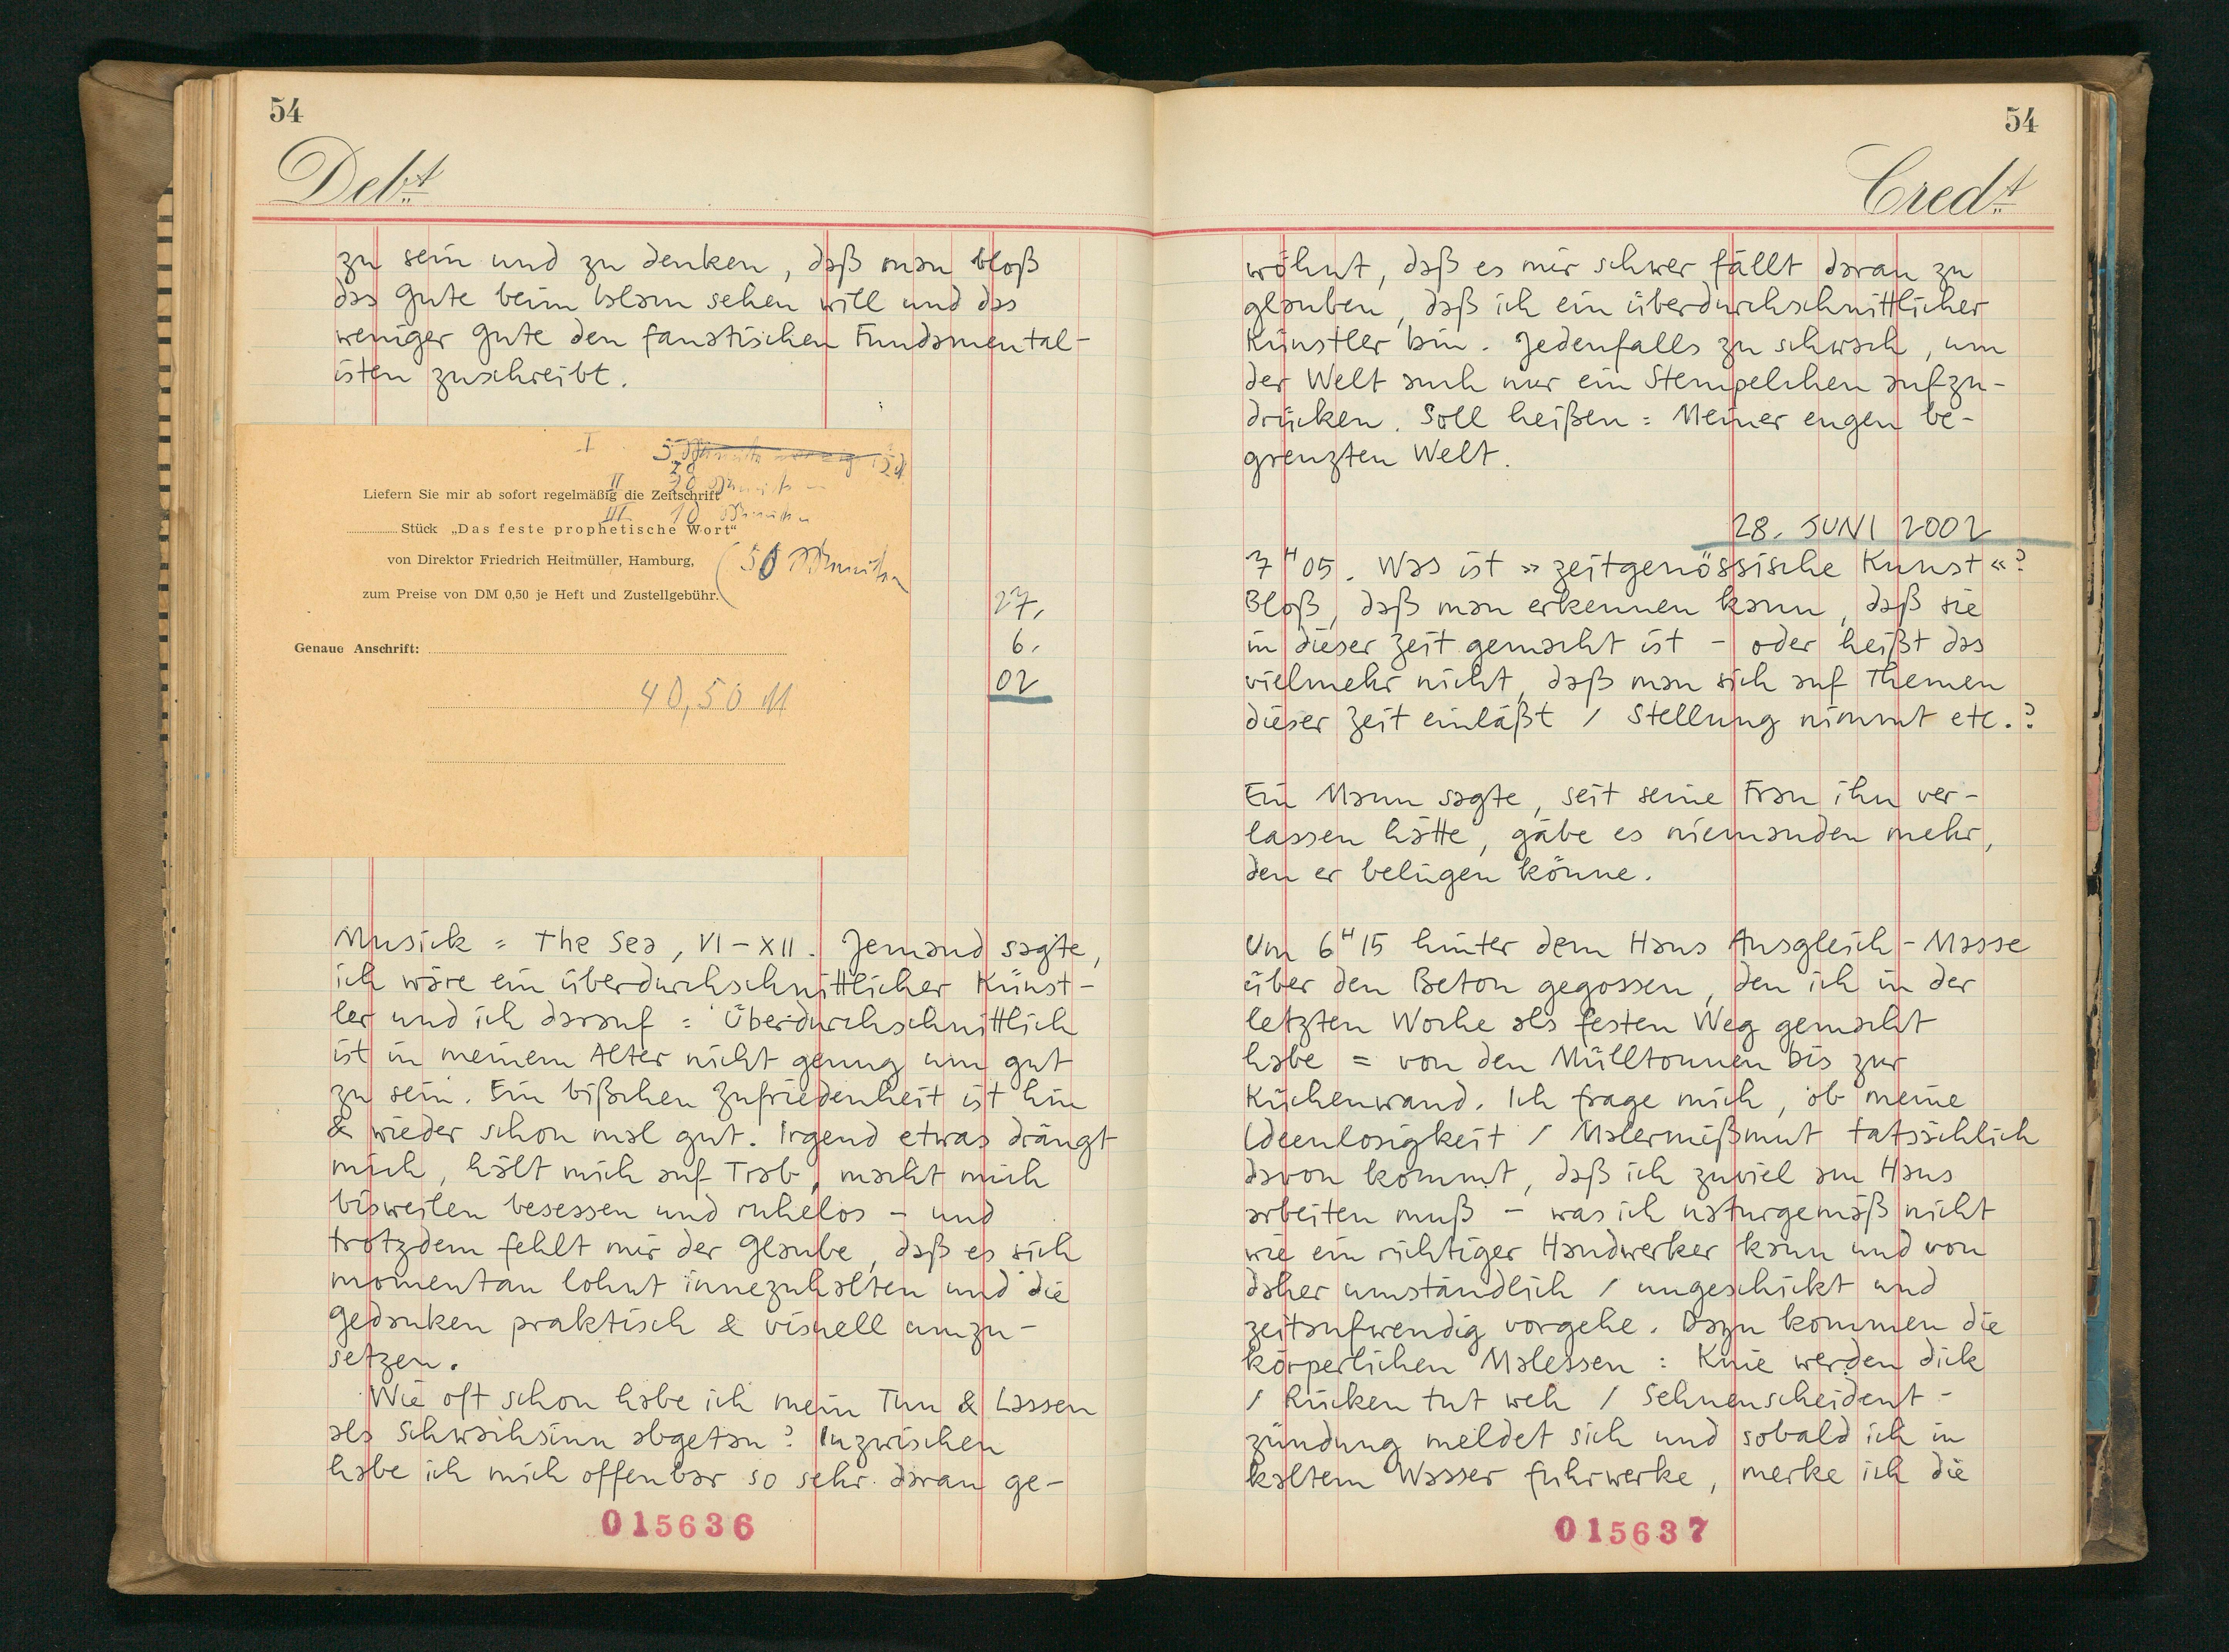 54
Debt
zu sein und zu denken, daß man bloß
das Gute beim Islam sehen will und das
weniger Gute den fanatischen Fundamental-
isten zuschreibt.
I 5
28
II 20
Liefern Sie mir ab sofort regelmäßig die Zeitschrift
III 10
Stück „Das feste prophetische Wort“
von Direktor Friedrich Heitmüller, Hamburg,
(50
zum Preise von DM 0,50 je Heft und Zustellgebühr.
Genaue Anschrift:
40,50 M
27.
6.
02
Musick = The Sea, VI–XII. Jemand sagte,
ich wäre ein überdurchschnittlicher Künst-
ler und ich darauf = Überdurchschnittlich
ist in meinem Alter nicht genug um gut
zu sein. Ein bißchen Zufriedenheit ist hin
& wieder schon mal gut. Irgend etwas drängt
mich, hält mich auf Trab, macht mich
bisweilen besessen und ruhelos – und
trotzdem fehlt mir der Glaube, daß es sich
momentan lohnt innezuhalten und die
Gedanken praktisch & visuell umzu-
setzen.
Wie oft schon habe ich mein Tun & Lassen
als Schwachsinn abgetan? Inzwischen
habe ich mich offenbar so sehr daran ge-
015636
54
Credt
wöhnt, daß es mir schwer fällt daran zu
glauben, daß ich ein überdurchschnittlicher
Künstler bin. Jedenfalls zu schwach, um
der Welt auch nur ein Stempelchen aufzu-
drücken. Soll heißen = Meiner engen be-
grenzten Welt.
28. JUNI 2002
7H05. Was ist »zeitgenössische Kunst«?
Bloß, daß man erkennen kann, daß sie
in dieser Zeit gemacht ist – oder heißt das
vielmehr nicht, daß man sich auf Themen
dieser Zeit einläßt / Stellung nimmt etc.?
Ein Mann sagte, seit seine Frau ihn ver-
lassen hätte, gäbe es niemanden mehr,
den er belügen könne.
Um 6H15 hinter dem Haus Ausgleich-Masse
über den Beton gegossen, den ich in der
letzten Woche als festen Weg gemacht
habe = von den Mülltonnen bis zur
Küchenwand. Ich frage mich, ob meine
Ideenlosigkeit / Malermißmut tatsächlich
davon kommt, daß ich zuviel am Haus
arbeiten muß – was ich naturgemäß nicht
wie ein richtiger Handwerker kann und von
daher umständlich / ungeschickt und
zeitaufwendig vorgehe. Dazu kommen die
körperlichen Malessen : Knie werden dick
/ Rücken tut weh / Sehnenscheident-
zündung meldet sich und sobald ich in
kaltem Wasser fuhrwerke, merke ich die
015637